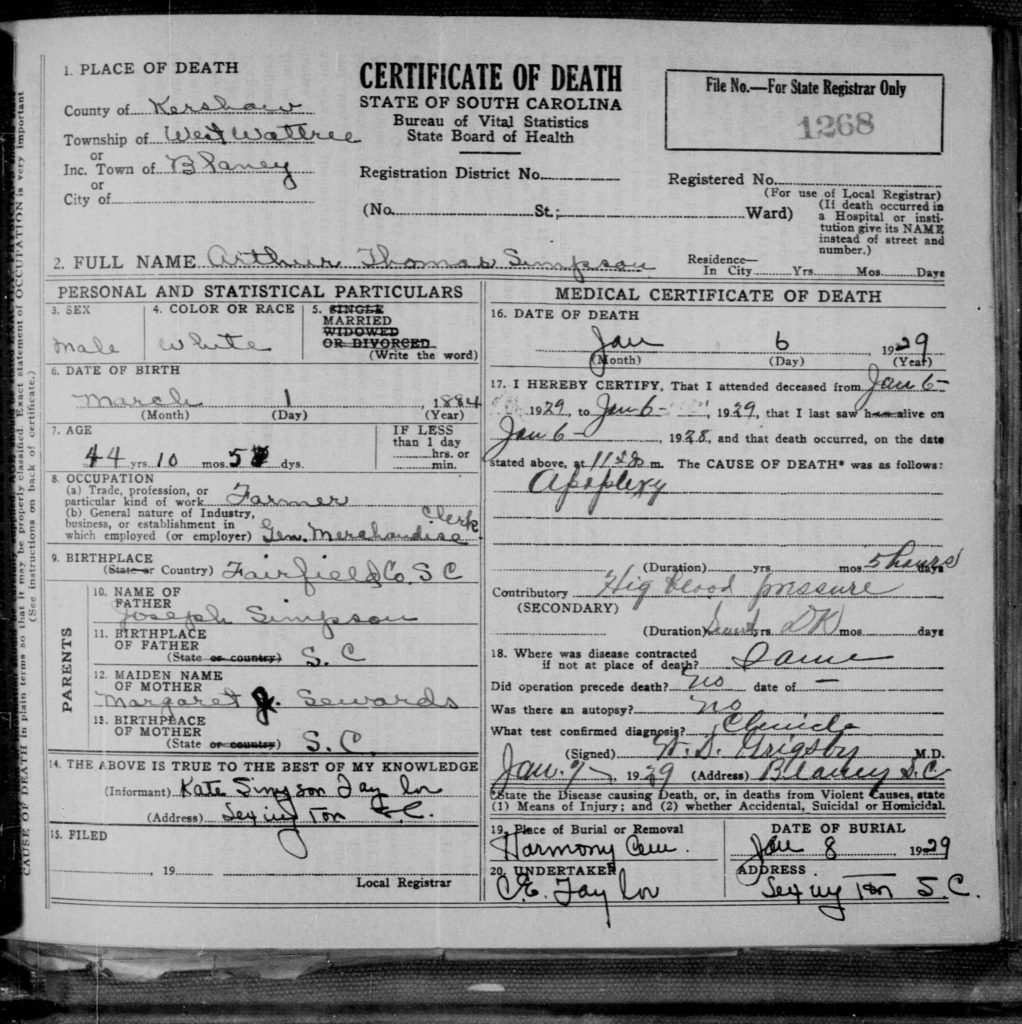 1. PLACE OF DEATH
County of Kershaw
Township of West Wattree
or
Inc. Town of Blaney
or
City of
CERTIFICATE OF DEATH
STATE OF SOUTH CAROLINA
Bureau of Vital Statistics
State Board of Health
Registration District No.
(No. St.; Ward)
File No.—For State Registrar Only
1268
Registered No.
(For use of Local Registrar)
(If death occurred in
a Hospital or insti-
tution give its NAME
instead of street and
number.)
2. FULL NAME Arthur Thomas Simpson
Residence—
In City Yrs. Mos. Days
PERSONAL AND STATISTICAL PARTICULARS
3. SEX
male
4. COLOR OR RACE
White
5. SINGLE
MARRIED
WIDOWED
OR DIVORCED
(Write the word)
6. DATE OF BIRTH
March 1, 1884
(Month) (Day) (Year)
7. AGE
44 yrs. 10 mos. 5 dys.
IF LESS
than 1 day
hrs. or
min.
8. OCCUPATION
(a) Trade, profession, or
particular kind of work Farmer
(b) General nature of Industry,
business, or establishment in
which employed (or employer) Gen. Merchandise Clerk
9. BIRTHPLACE
(State or Country) Fairfield Co. S C
PARENTS
10. NAME OF
FATHER
Joseph Simpson
11. BIRTHPLACE
OF FATHER
(State or country) S. C
12. MAIDEN NAME
OF MOTHER
Margaret J. Sewards
13. BIRTHPLACE
OF MOTHER
(State or country) S. C.
14. THE ABOVE IS TRUE TO THE BEST OF MY KNOWLEDGE
(Informant) Kate Simpson Taylor
(Address) Lexington S.C.
15. FILED
, 19
Local Registrar
MEDICAL CERTIFICATE OF DEATH
16. DATE OF DEATH
Jan 6 1929
(Month) (Day) (Year)
17. I HEREBY CERTIFY, That I attended deceased from Jan 6-
1929, to Jan 6-, 1929, that I last saw h alive on
Jan 6-, 1928, and that death occurred, on the date
stated above, at m. The CAUSE OF DEATH* was as follows:
Apoplexy
(Duration) yrs. mos. 5 hours days
Contributory Hig blood pressure
(SECONDARY)
(Duration) yrs. DK mos. days
18. Where was disease contracted
if not at place of death? Same
Did operation precede death? no date of —
Was there an autopsy? no
What test confirmed diagnosis?
(Signed) W. D. Grigsby M.D.
Jan. 7-, 1929 (Address) Blaney S.C
*State the Disease causing Death, or, in deaths from Violent Causes, state
(1) Means of Injury; and (2) whether Accidental, Suicidal or Homicidal.
19. Place of Burial or Removal
Harmony Cem.
DATE OF BURIAL
Jan 8 1929
20. UNDERTAKER
C.E. Taylor
ADDRESS
Lexington S.C.
CAUSE OF DEATH in plain terms so that it may be properly classified. Exact statement of OCCUPATION is very important
(See instructions on back of certificate.)